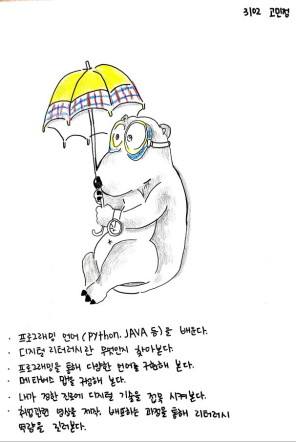 3102 고민정
· 프로그래밍 언어 (python, JAVA 등)을 배운다.
· 디지털 리터러시란 무엇인지 찾아본다.
· 프로그래밍을 통해 다양한 언어를 구현해 본다.
· 메타버스 맵을 구성해 본다.
· 내가 정한 진로에 디지털 기술을 접목 시켜본다.
· 취업관련 영상을 제작, 배포하는 과정을 통해 리터러시
역량을 길러본다.